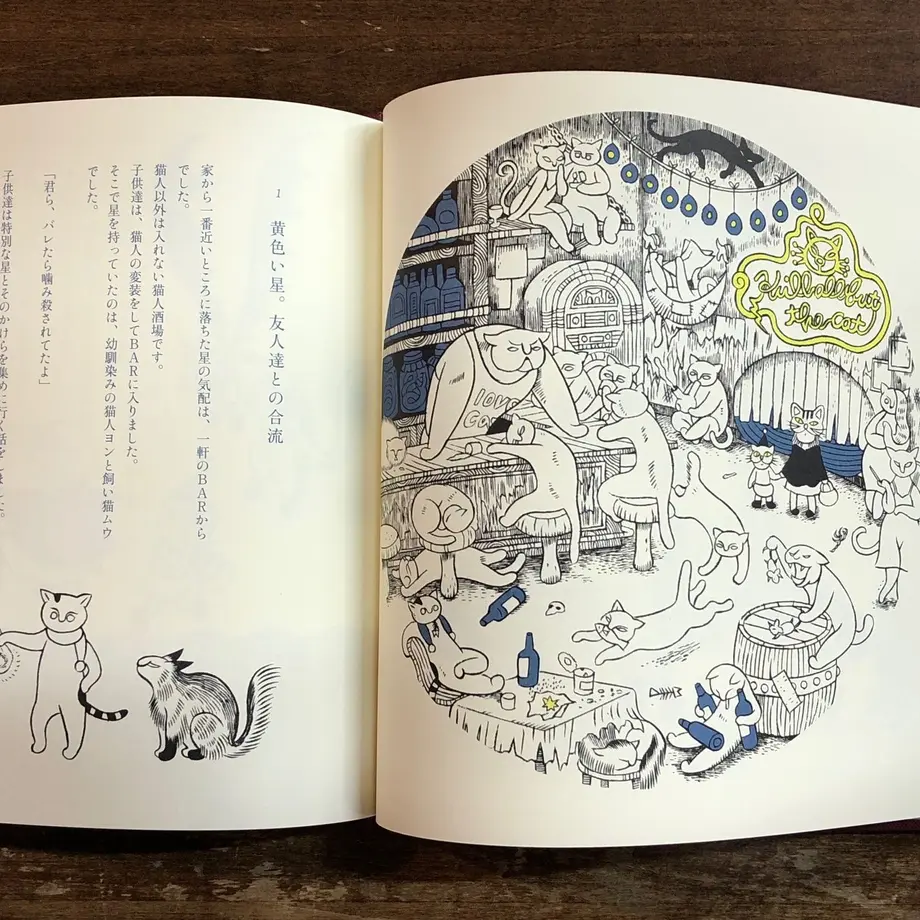 1 黄色い星。友人達との合流
家から一番近いところに落ちた星の気配は、一軒のBARから
でした。
猫人以外は入れない猫人酒場です。
子供達は、猫人の変装をしてBARに入りました。
そこで星を持っていたのは、幼馴染みの猫人ヨンと飼い猫ムウ
でした。
「君ら、バレたら噛み殺されてたよ」
子供達は特別な星とそのかけらを集めに行く話をしました。
Kill all but
the cat
love